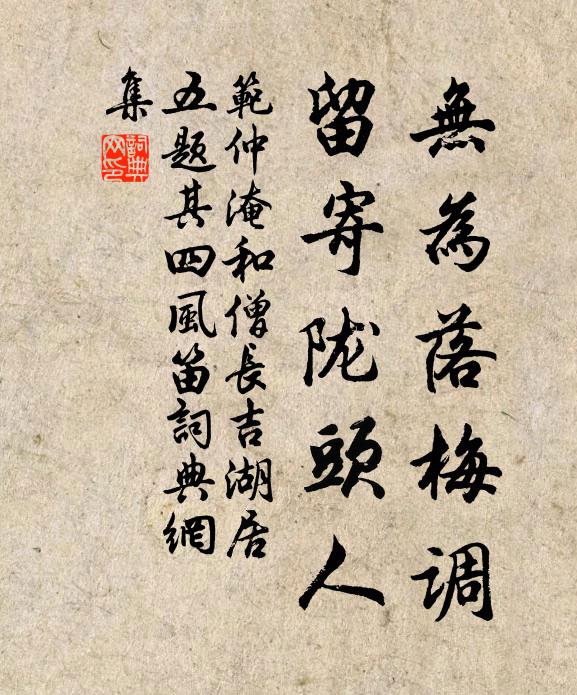 無為落梅调
留寄陇頭人
範仲淹和僧長吉湖居
五题其四風笛詞典網
集
詞典
网印